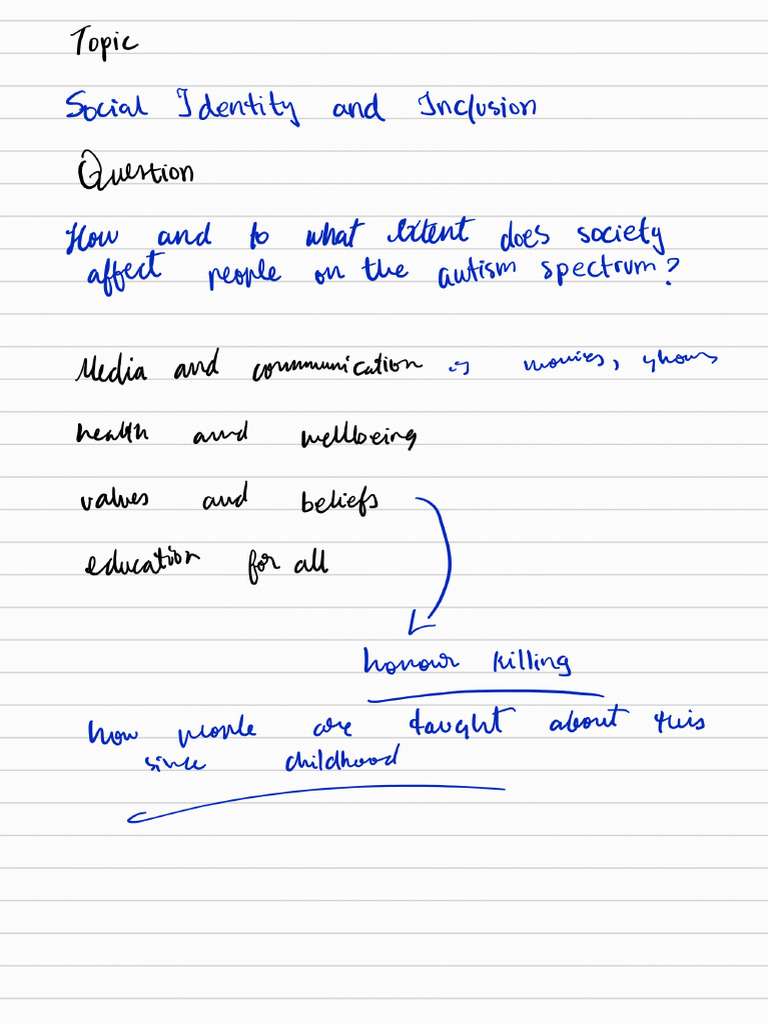 Topic
Social Identity and Inclusion
Question
How and to what extent does society
affect people on the autism spectrum?
Media and communication movies, shows
health and wellbeing
values and beliefs
education for all
honour killing
how people are taught about this
since childhood